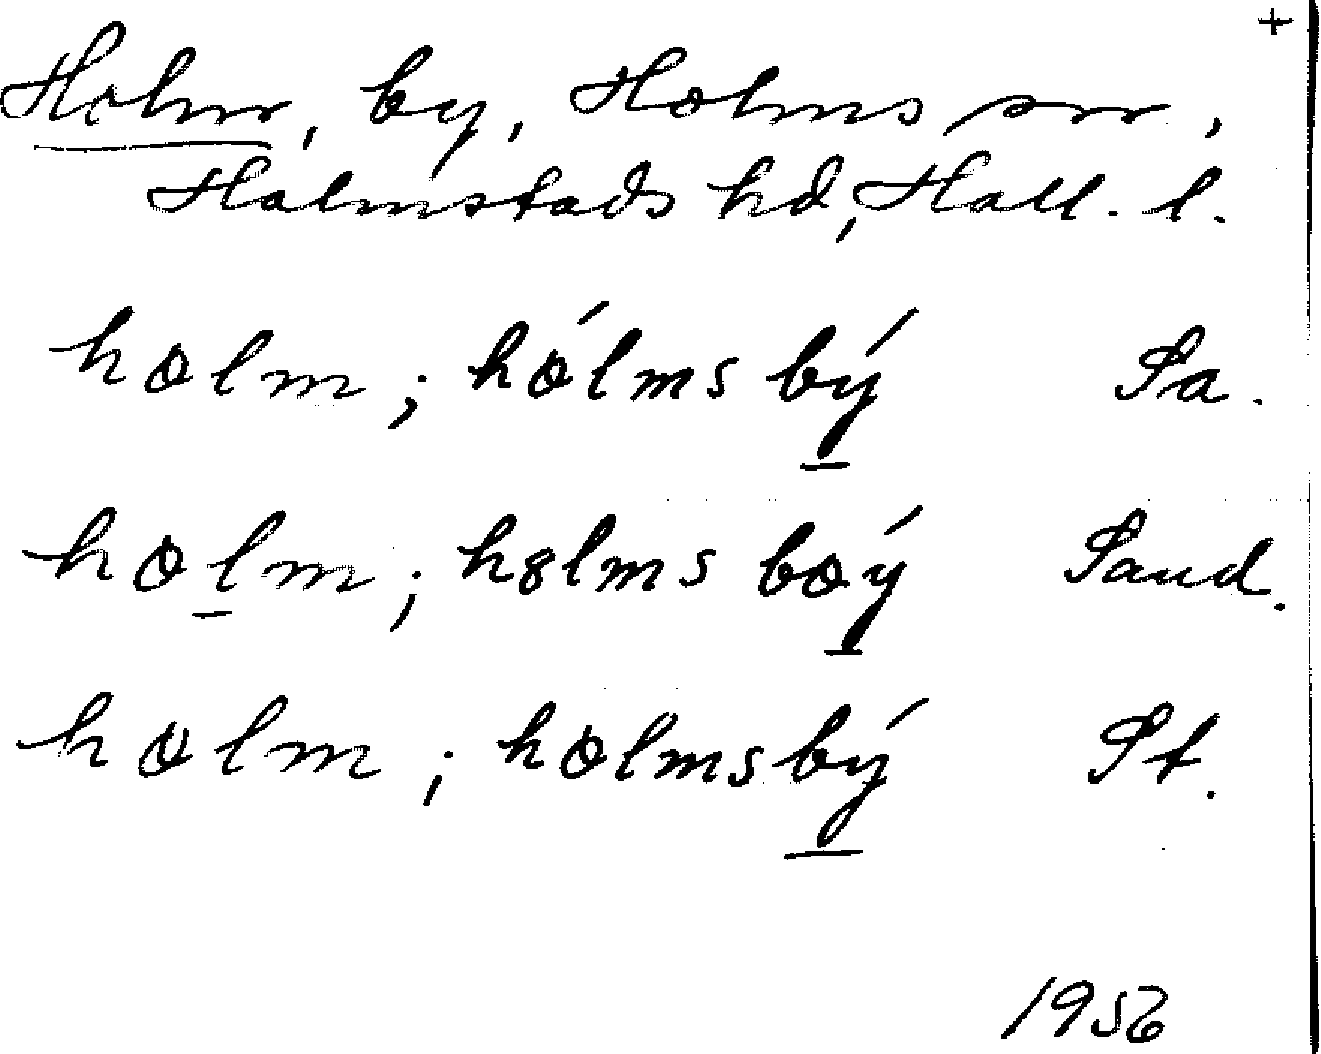 +
Holm, by, Holms sn,
Halmstads hd, Hall. l.
holm; hólms bý Sa.
holm; holms boý Sand.
holm; holmsbý St.
1956